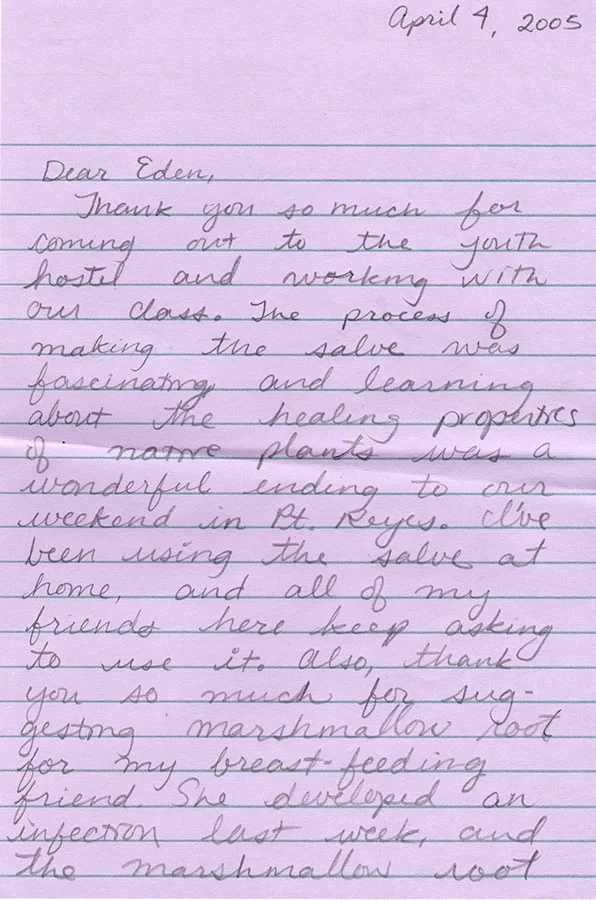 April 4, 2005
Dear Eden,
Thank you so much for
coming out to the youth
hostel and working with
our class. The process of
making the salve was
fascinating and learning
about the healing properties
of native plants was a
wonderful ending to our
weekend in Pt. Reyes. I've
been using the salve at
home, and all of my
friends here keep asking
to use it. Also, thank
you so much for sug-
gesting marshmallow root
for my breast-feeding
friend. She developed an
infection last week, and
the marshmallow root